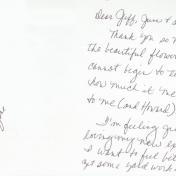 Dear Jeff, Jean & s
Thank you so m
the beautiful flower
cannot begin to te
how much it me
to me (and Howard)
I'm feeling
loving my new
I want to feel bet
get some yard work